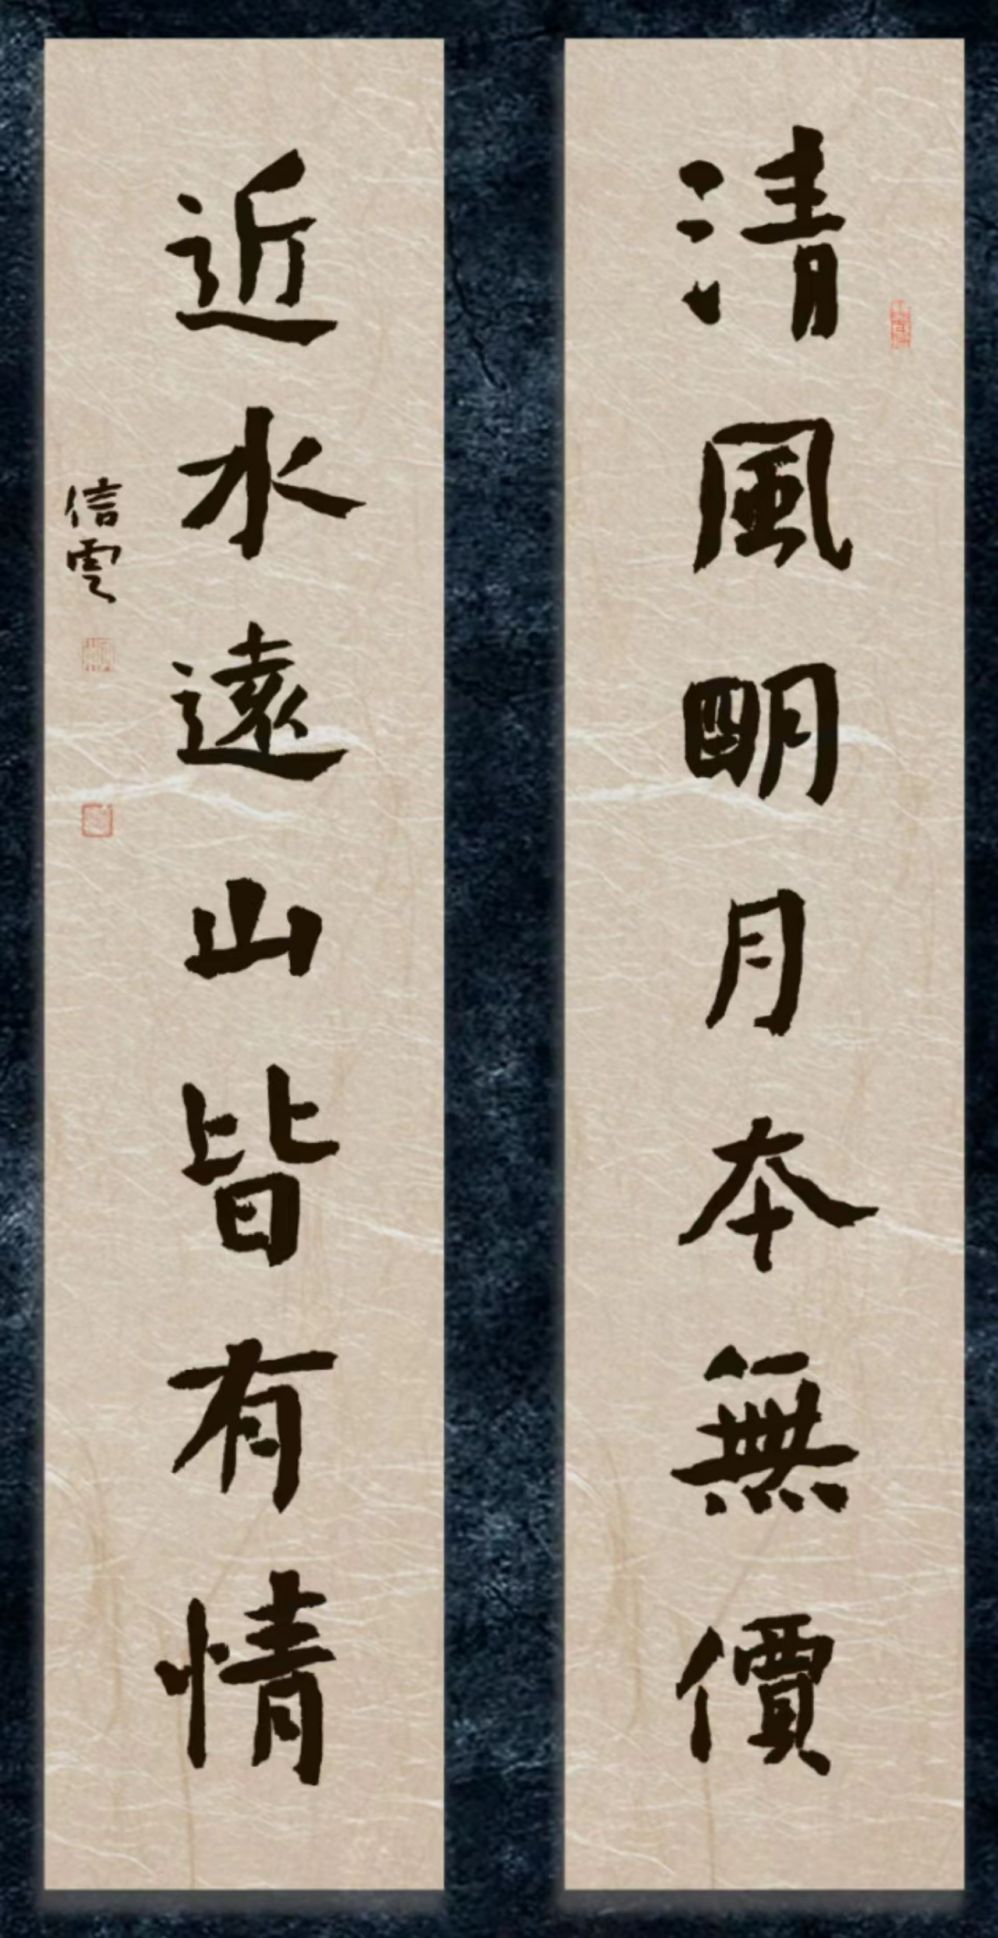 清風明月本無價
近水遠山皆有情
信雲